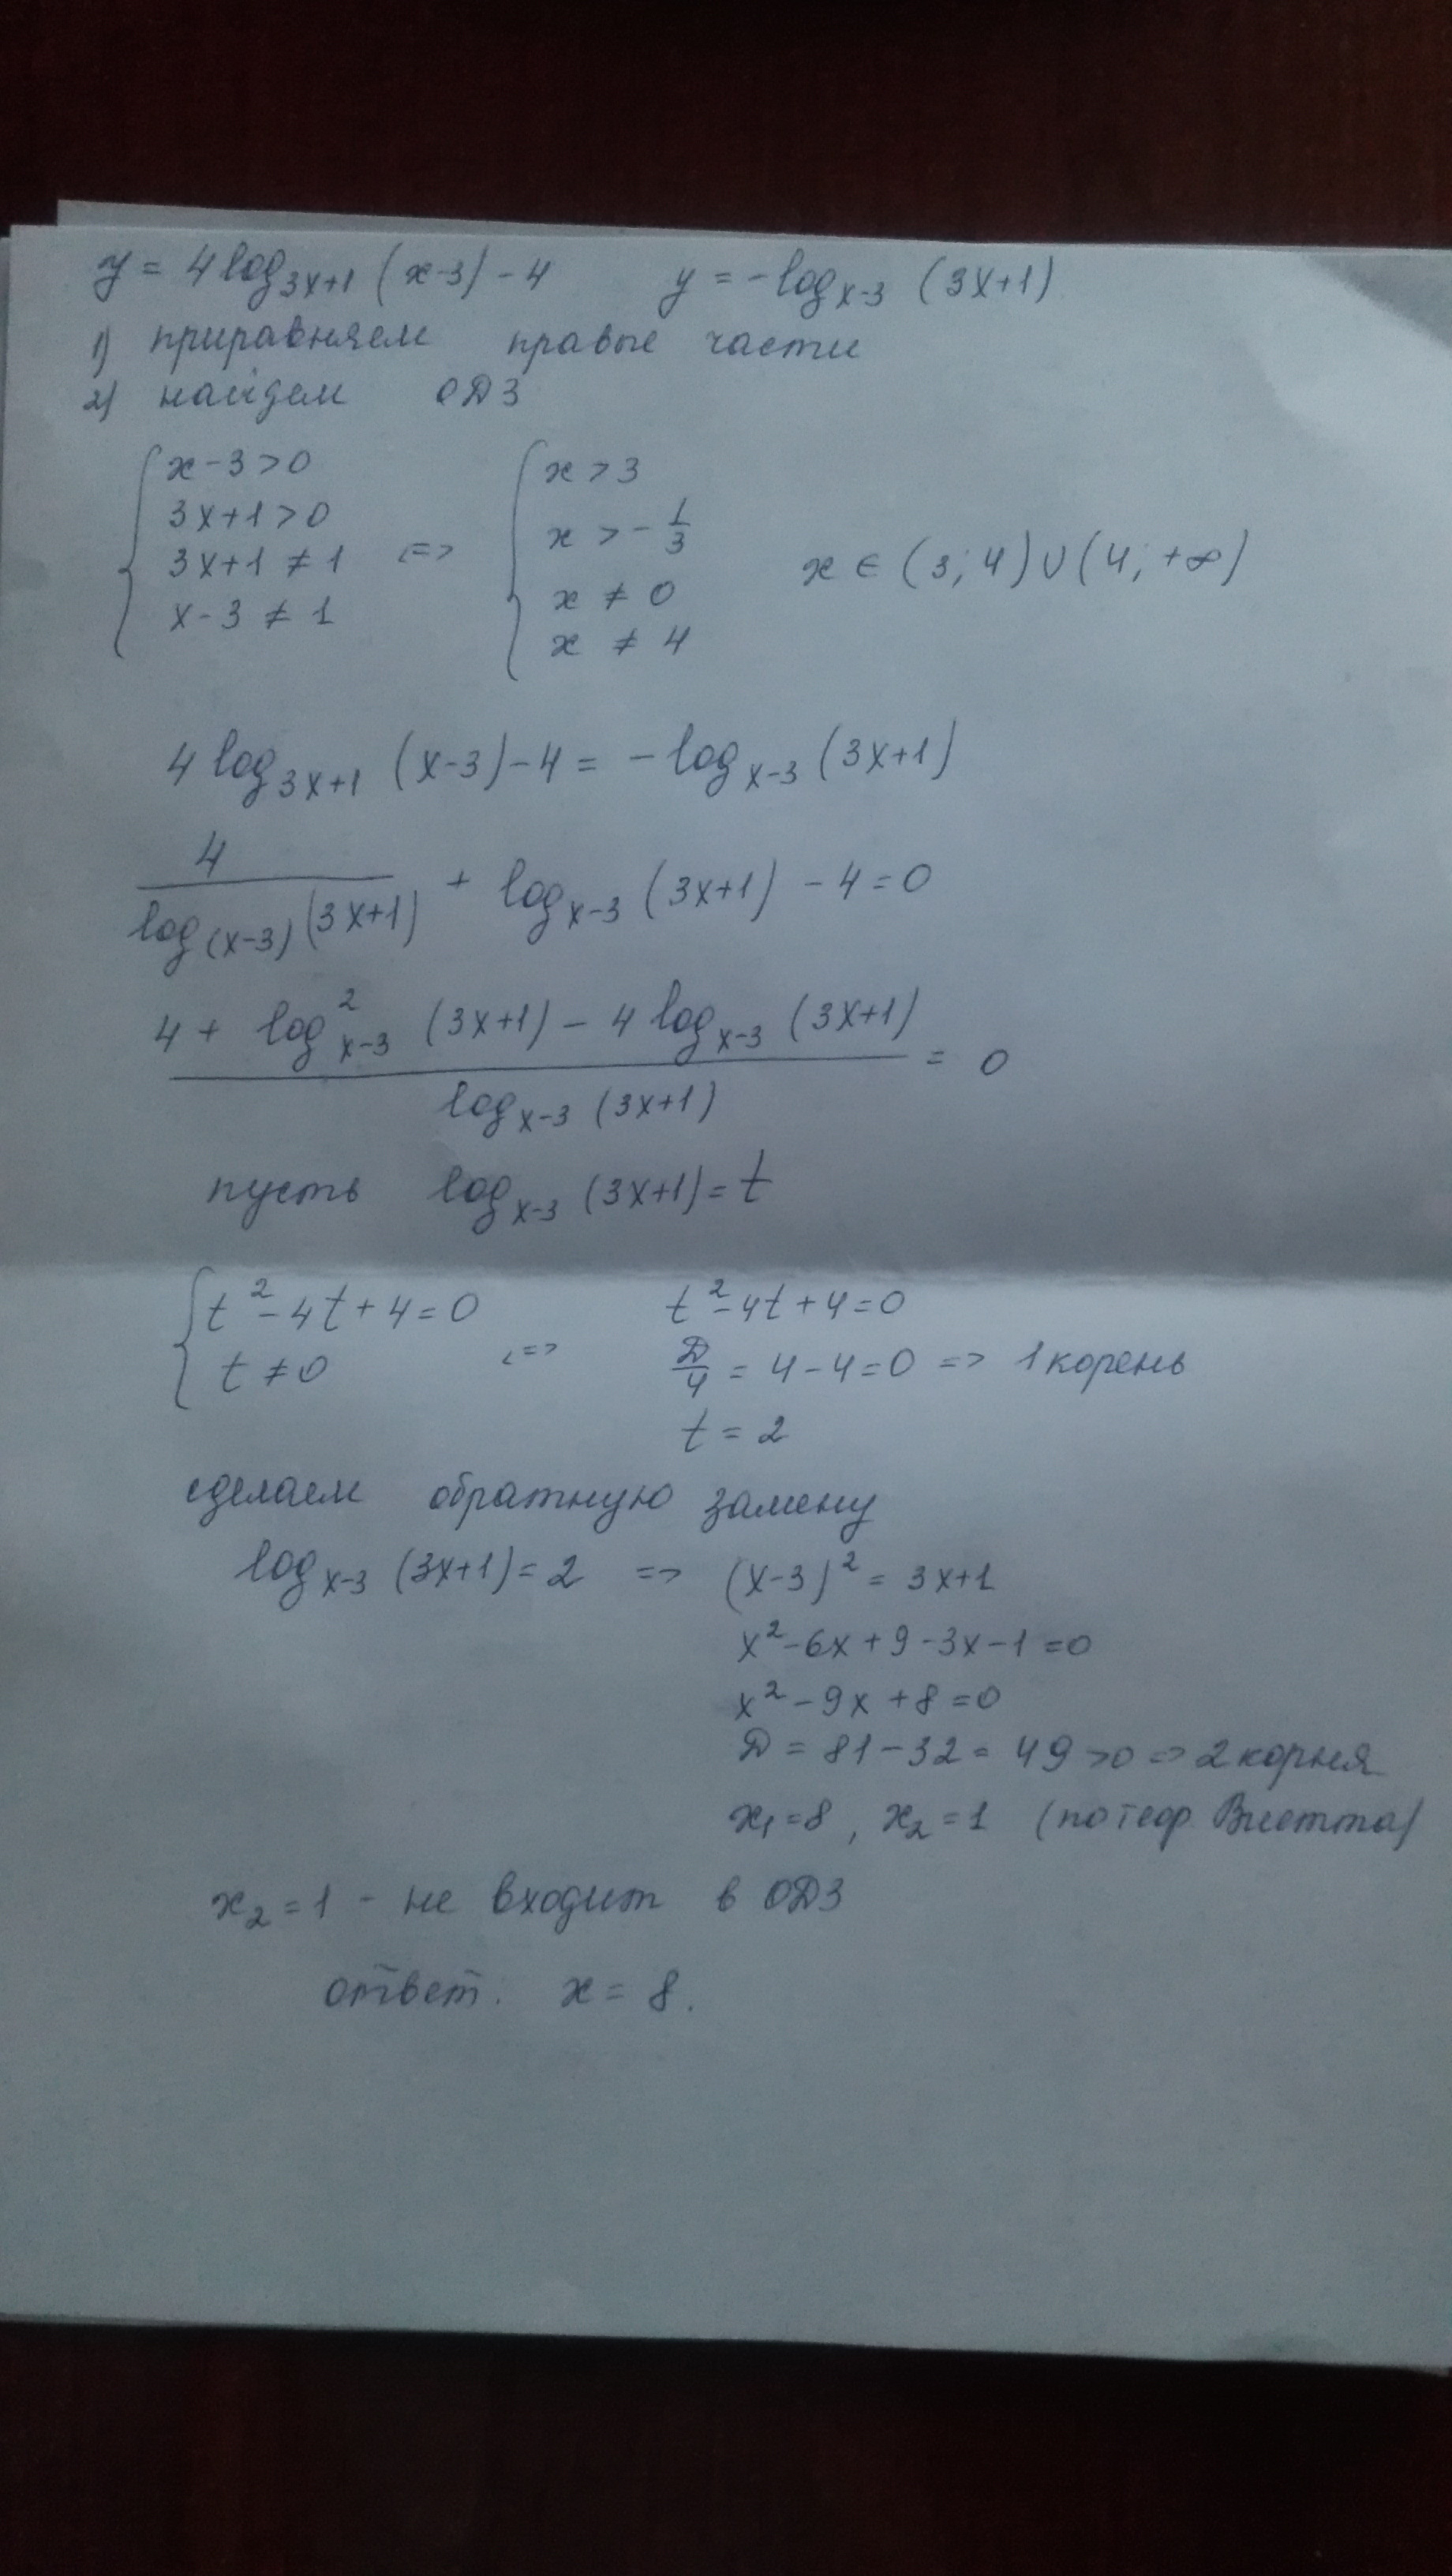 y = 4 log₃ₓ₊₁ (x-3) - 4    y = -logₓ₋₃ (3x+1)
1) приравняем правые части
2) найдем ОДЗ
{ x-3>0    { x>3
3x+1>0    x > -1/3
3x+1≠1    <=>    x ≠ 0    x ∈ (3; 4)∪(4; +∞)
x-3≠1    x ≠ 4
4 log₃ₓ₊₁ (x-3) - 4 = - logₓ₋₃ (3x+1)
4/log₍ₓ₋₃₎(3x+1) + logₓ₋₃ (3x+1) - 4 = 0
(4 + log²ₓ₋₃ (3x+1) - 4 logₓ₋₃ (3x+1))/logₓ₋₃ (3x+1) = 0
пусть logₓ₋₃ (3x+1) = t
{ t² - 4t + 4 = 0    t² - 4t + 4 = 0
t ≠ 0    <=>    Д/4 = 4 - 4 = 0 => 1 корень
t = 2
сделаем обратную замену
logₓ₋₃ (3x+1) = 2 => (x-3)² = 3x+1
x² - 6x + 9 - 3x - 1 = 0
x² - 9x + 8 = 0
Д = 81 - 32 = 49 >0 => 2 корня
x₁ = 8, x₂ = 1 (по теор Виетта)
x₂ = 1 - не входит в ОДЗ
ответ: x = 8.